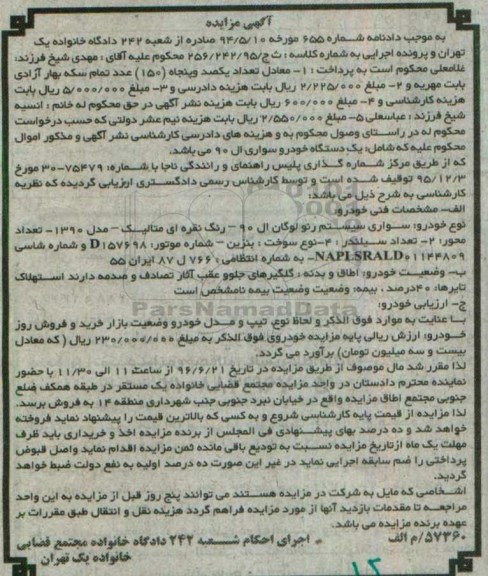 آگهی مزایده
به موجب دادنامه شماره ۶۵۵ مورخه ۹۴/۵/۱۰ صادره از شعبه ۲۴۲ دادگاه خانواده یک
تهران و پرونده اجرایی به شماره کلاسه: ث ج/۲۵۶/۲۴۲/۹۵ محکوم علیه آقای: مهدی شیخ فرزند:
غلامعلی محکوم است به پرداخت: ۱- معادل تعداد یکصد وپنجاه (۱۵۰) عدد تمام سکه بهار آزادی
بابت مهریه و ۲- مبلغ ۲/۲۲۵/۰۰۰ ریال بابت هزینه دادرسی و ۳- مبلغ ۵/۰۰۰/۰۰۰ ریال بابت
هزینه کارشناسی و ۴- مبلغ ۶۰۰/۰۰۰ ریال بابت هزینه نشر آگهی در حق محکوم له خانم: انسیه
شیخ فرزند: عباسعلی ۵- مبلغ ۲/۵۵۰/۰۰۰ ریال بابت هزینه نیم عشر دولتی که حسب درخواست
محکوم له در راستای وصول محکوم به و هزینه های دادرسی کارشناسی نشر آگهی و مذکور اموال
محکوم علیه که شامل: یک دستگاه خودرو سواری ال ۹۰ می باشد.
که از طریق مرکز شماره گذاری پلیس راهنمای و رانندگی ناجا با شماره: ۷۵۴۷۹-۳۰ مورخ
۹۵/۱۲/۳ توقیف شده است و توسط کارشناس رسمی دادگستری ارزیابی گردیده که نظریه
کارشناسی به شرح ذیل می باشد:
الف- مشخصات فنی خودرو:
نوع خودرو: سواری سیستم رنو لوگان ال ۹۰ - رنگ نقره ای متالیک - مدل ۱۳۹۰- تعداد
محور: ۲- تعداد سیلندر: ۴- نوع سوخت: بنزین - شماره موتور: D۱۵۷۶۹۸ و شماره شاسی
NAPLSRALD۰۱۱۴۴۸۰۹- به شماره انتظامی: ۷۶۶ ل ۸۷ ایران ۵۵
ب- وضعیت خودرو: اطاق و بدنه: گلگیرهای جلوو عقب آثار تصادف و صدمه دارند استهلاک
تایرها: ۴۰درصد، بیمه: وضعیت وضعیت بیمه نامشخص است
ج- ارزیابی خودرو:
با عنایت به موارد فوق الذکر و لحاظ نوع، تیپ و مدل خودرو وضعیت بازار خرید و فروش روز
خودرو: ارزش ریالی پایه مزایده خودروی فوق الذکر به مبلغ ۲۳۰/۰۰۰/۰۰۰ ریال (که معادل
بیست و سه میلیون تومان) برآورد می گردد.
لذا مقرر شد مال موصوف از طریق مزایده در تاریخ ۹۶/۶/۲۱ از ساعت ۱۱ الی ۱۱/۳۰ با حضور
نماینده محترم دادستان در واحد مزایده مجتمع قضایی خانواده یک مستقر در طبقه همکف ضلع
جنوبی مجتمع اطاق مزایده واقع در خیابان نبرد جنوبی جنب شهرداری منطقه ۱۴ به فروش برسد.
لذا مزایده از قیمت پایه کارشناسی شروع و به کسی که بالاترین قیمت را پیشنهاد نماید فروخته
خواهد شد و ده درصد بهای پیشنهادی فی المجلس از برنده مزایده اخذ و خریداری باید ظرف
مهلت یک ماه ازتاریخ مزایده نسبت به تودیع باقی مانده ثمن مزایده اقدام نماید واصل قبوض
پرداختی را ضم سابقه اجرایی نماید در غیر این صورت ده درصد اولیه به نفع دولت ضبط خواهد
گردید.
اشخاصی که مایل به شرکت در مزایده هستند می توانند پنج روز قبل از مزایده به این واحد
مراجعه تا مقدمات بازدید آنها از مورد مزایده فراهم گردد هزینه نقل و انتقال طبق مقررات بر
عهده برنده مزایده می باشد.
۵۷۳۶۰/م الف
اجرای احکام شعبه ۲۴۲ دادگاه خانواده مجتمع قضایی
خانواده یک تهران
ParsNamadData